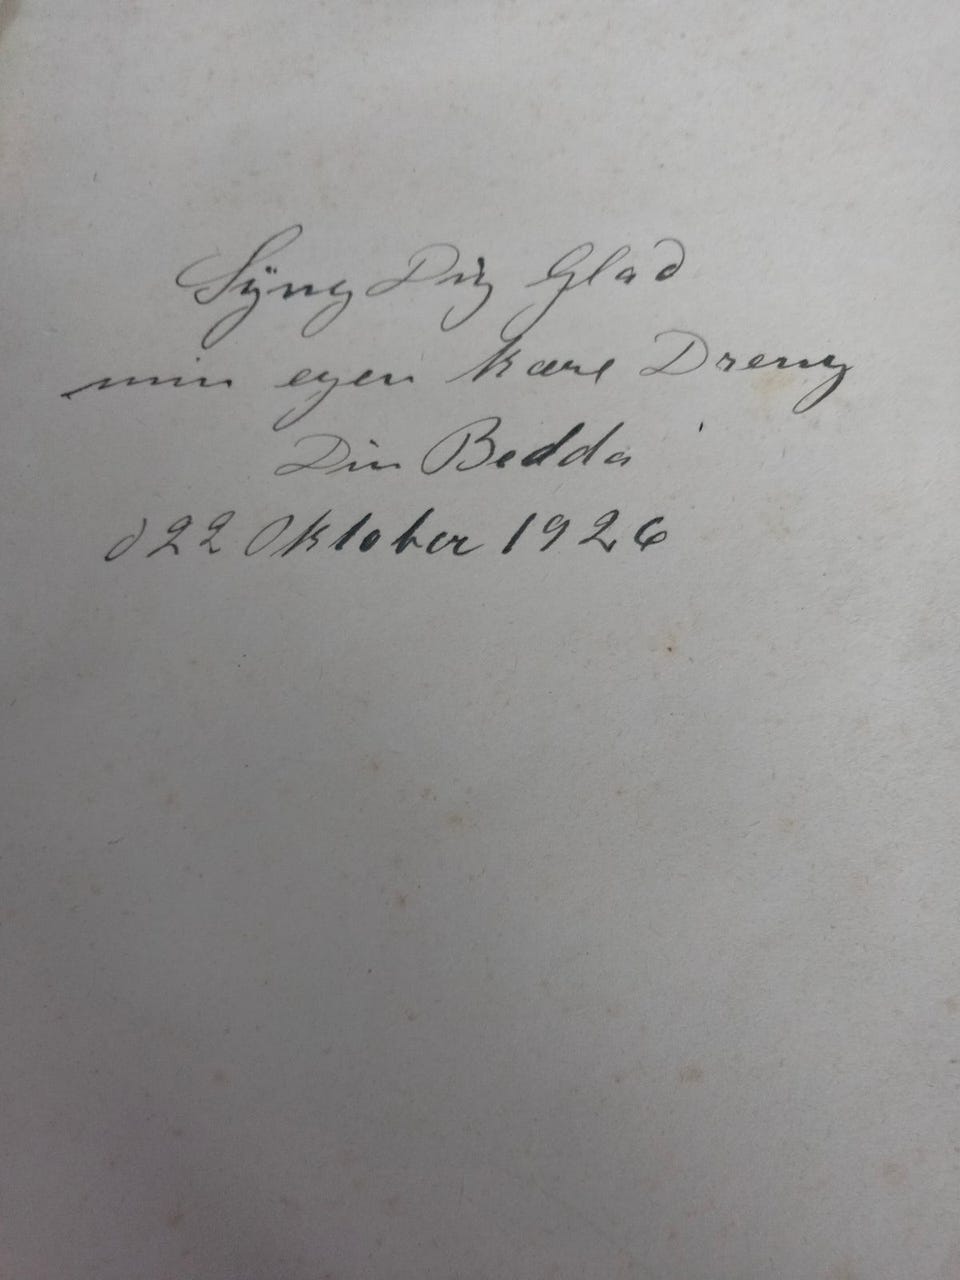 Syng Dig Glad
min egen kære Dreng
Din Bedda
d 22 Oktober 1926